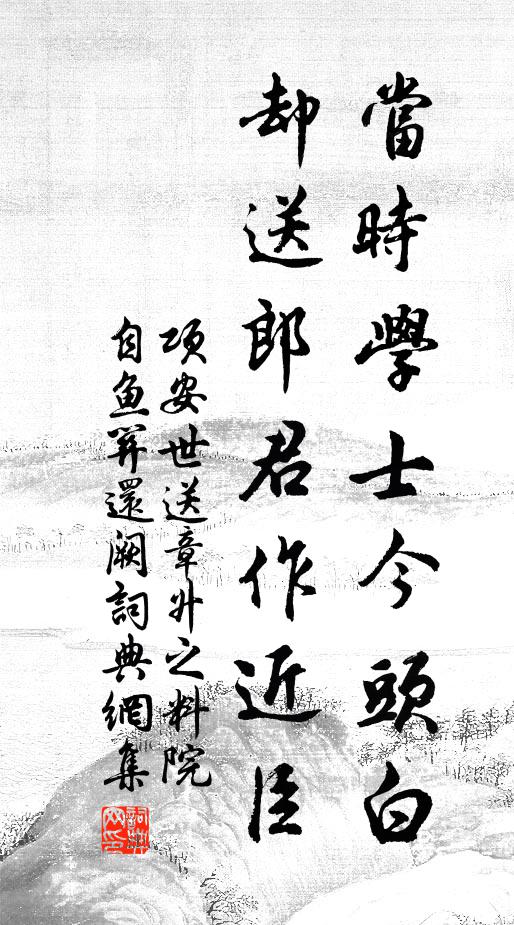 當時學士今頭白
却送郎君作近臣
項安世送章升之料院
自魚關還闕詞典網集